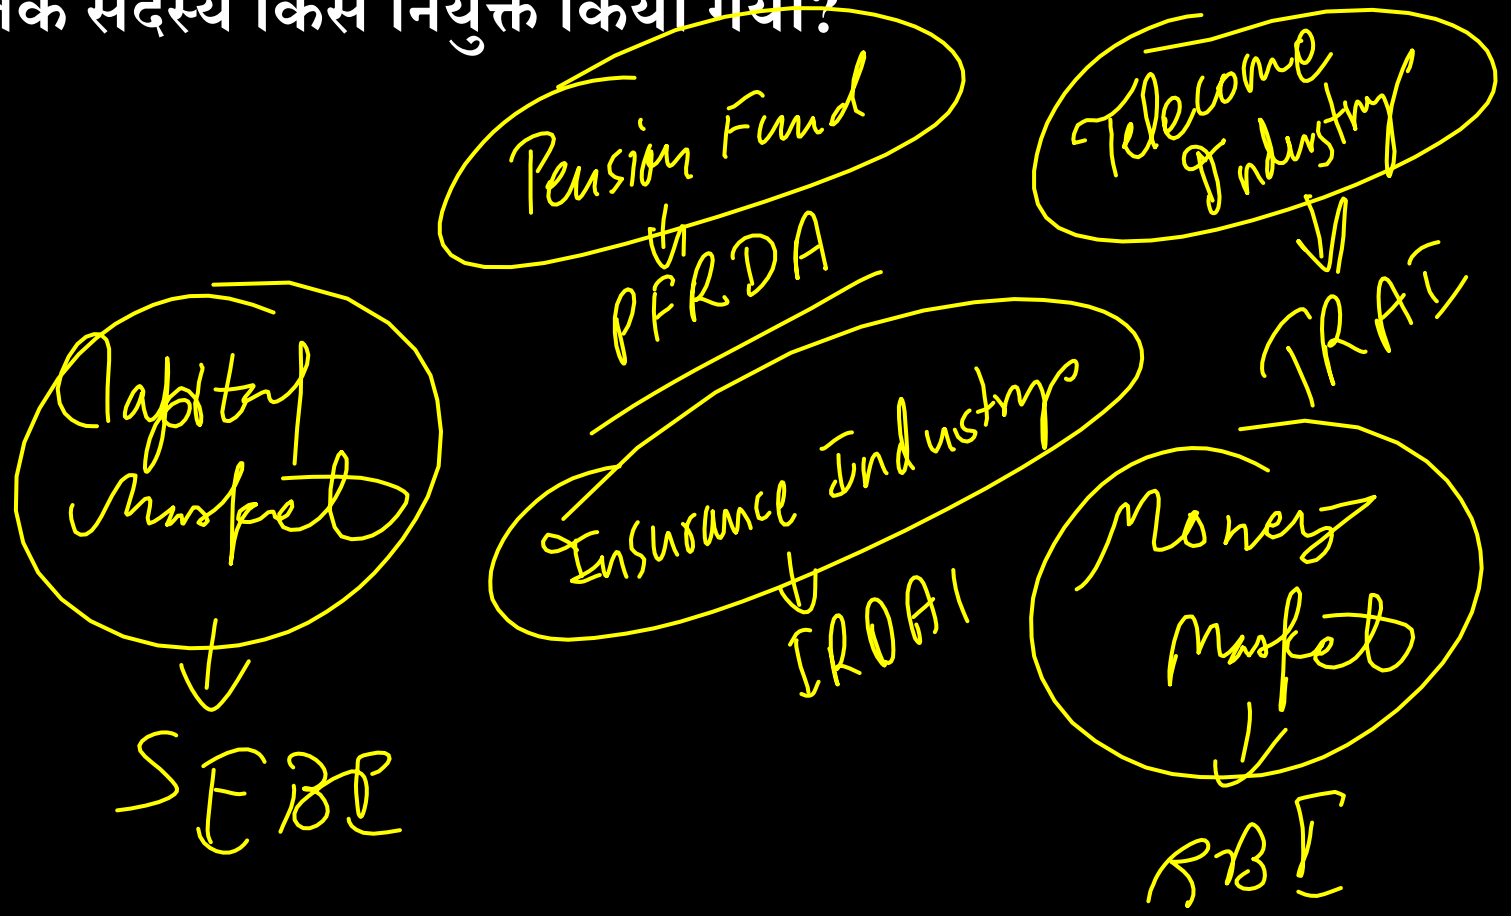 सदस्य किसे नियुक्त किया गया?
Pension Fund
PFRDA
Telecome
Industry
TRAI
Capital
Market
SEBI
Insurance Industry
IRDAI
Money
Market
RBI